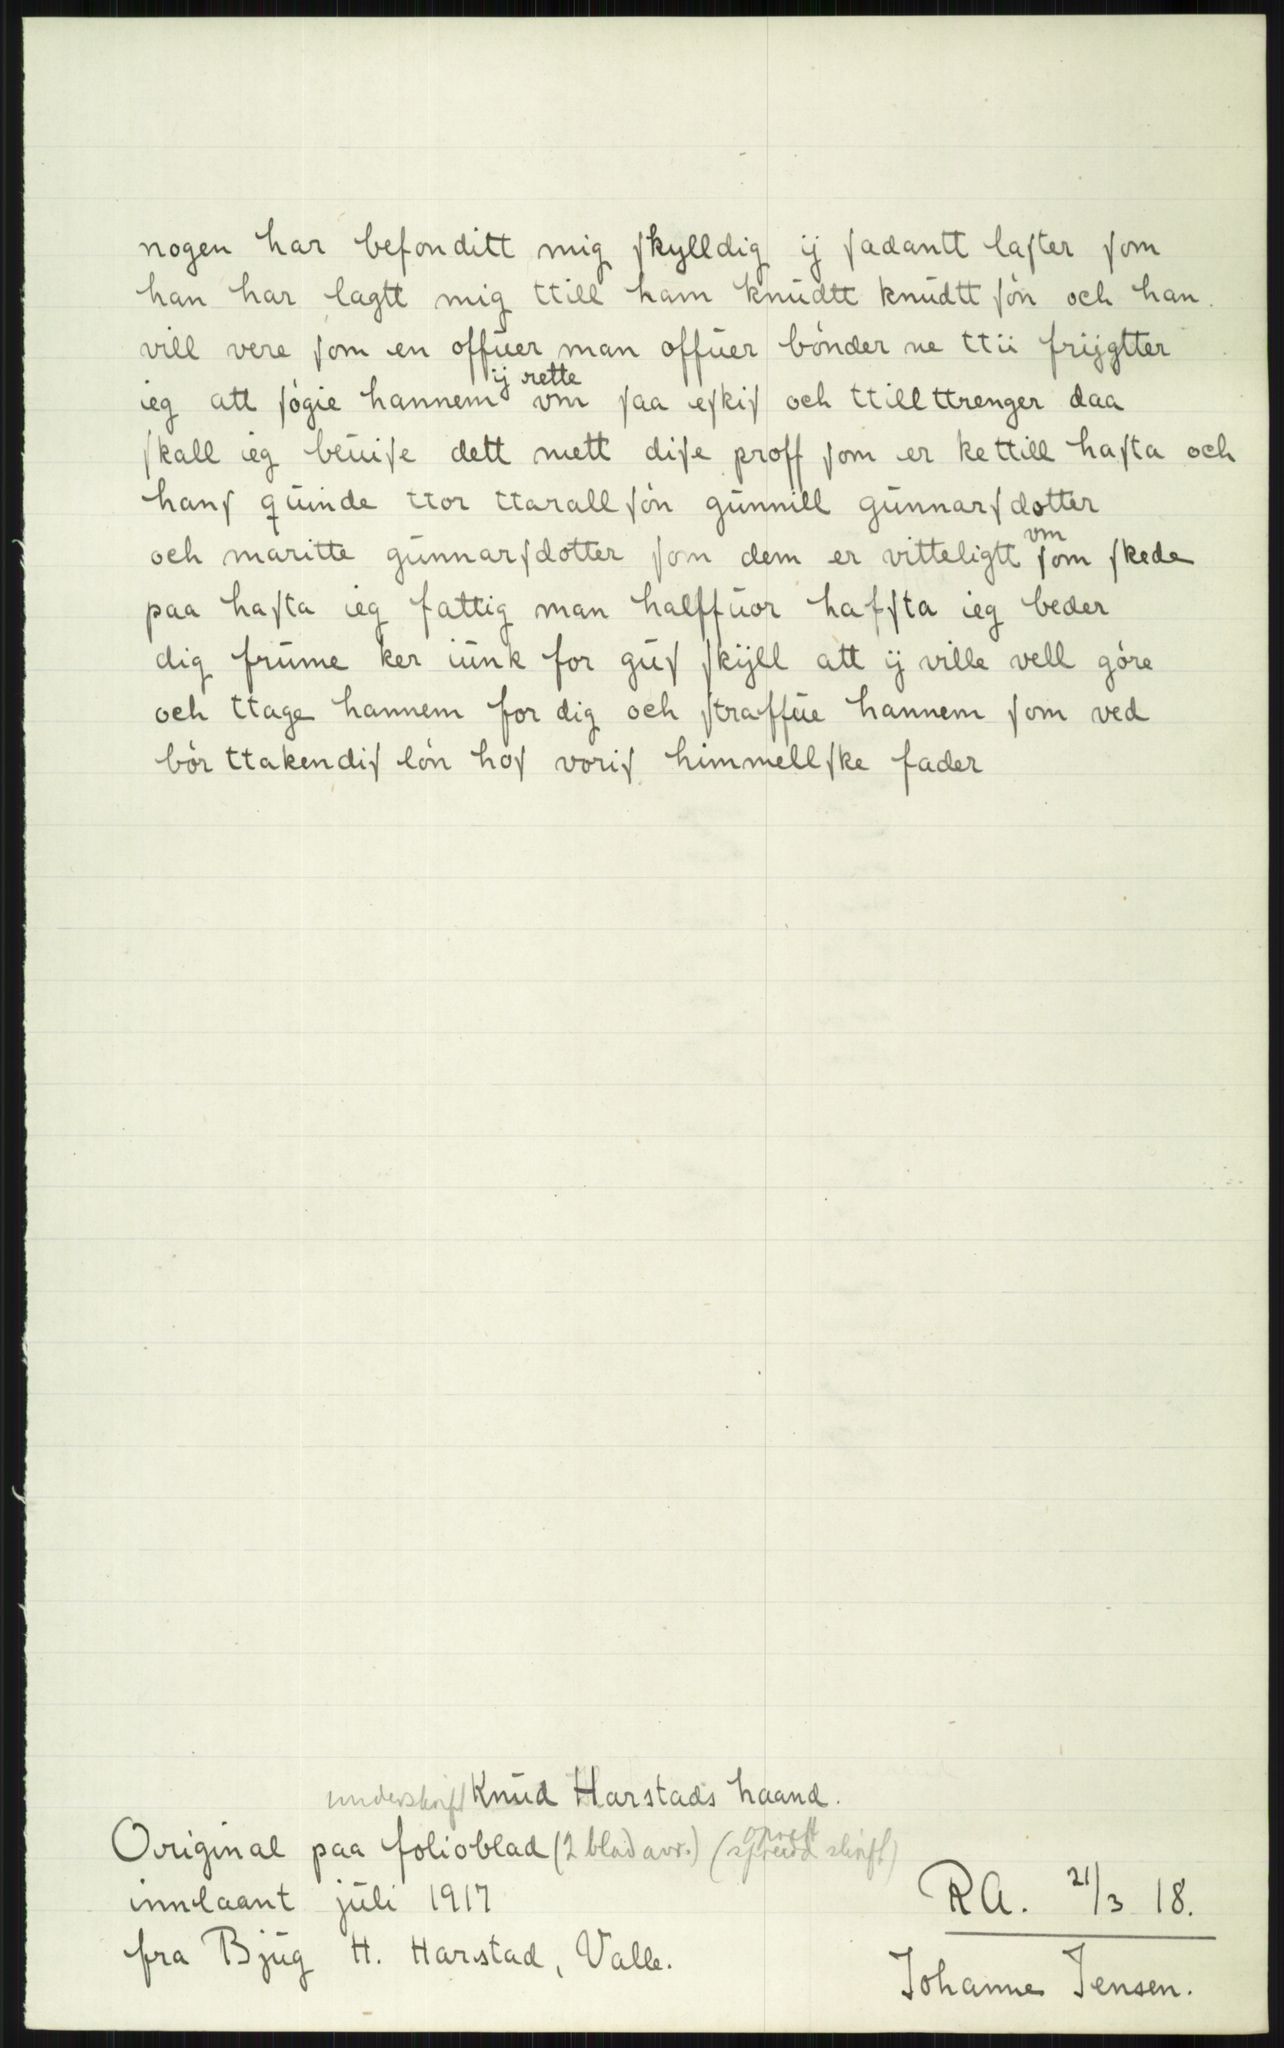 nogen har befonditt mig ſkylldig ij ſadantt laſter ſom
han har lagtt mig ttill ham knudtt knudtt ſón och han
vill vere ſom en offuer man offuer bónder ne ttü frijgtter
ieg att ſógie hannem ij rette vm ſaa eſkiſ och ttillttrenger daa
ſkall ieg beuiſe dett mett diſe proff ſom er kettill haſta och
hanſ quinde ttor ttarallſón gunnill gunnarſdotter
och maritte gunnarſdotter ſom dem er vitteligtt vm ſom ſkede
paa haſta ieg fattig man halffuor hafſta ieg beder
dig frume ker iunk for guſ ſkijll att ij ville vell góre
och ttage hannem for dig och ſtraffue hannem ſom ved
bór ttakendiſ lón hoſ voriſ himmellſke fader
underskrift Knud Harstads haand.
Original paa folioblad (2 blad avr.) (spredd skrift)
innlaant juli 1917
fra Bjug H. Harstad, Valle.
RA. 21/3 18.
Johanne Jensen.